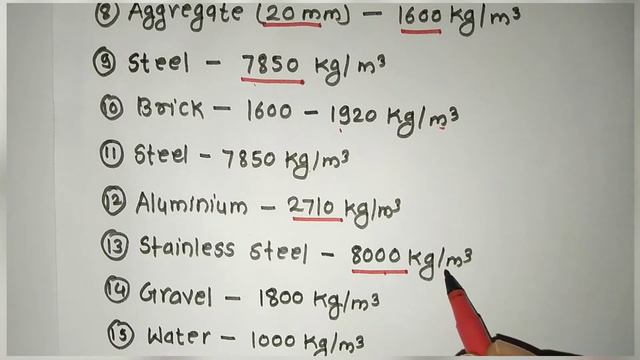 ⑧ Aggregate (20 mm) – 1600 Kg/m³
⑨ Steel – 7850 Kg/m³
⑩ Brick – 1600 – 1920 Kg/m³
⑪ Steel – 7850 Kg/m³
⑫ Aluminium – 2710 Kg/m³
⑬ Stainless Steel – 8000 Kg/m³
⑭ Gravel – 1800 Kg/m³
⑮ Water – 1000 Kg/m³